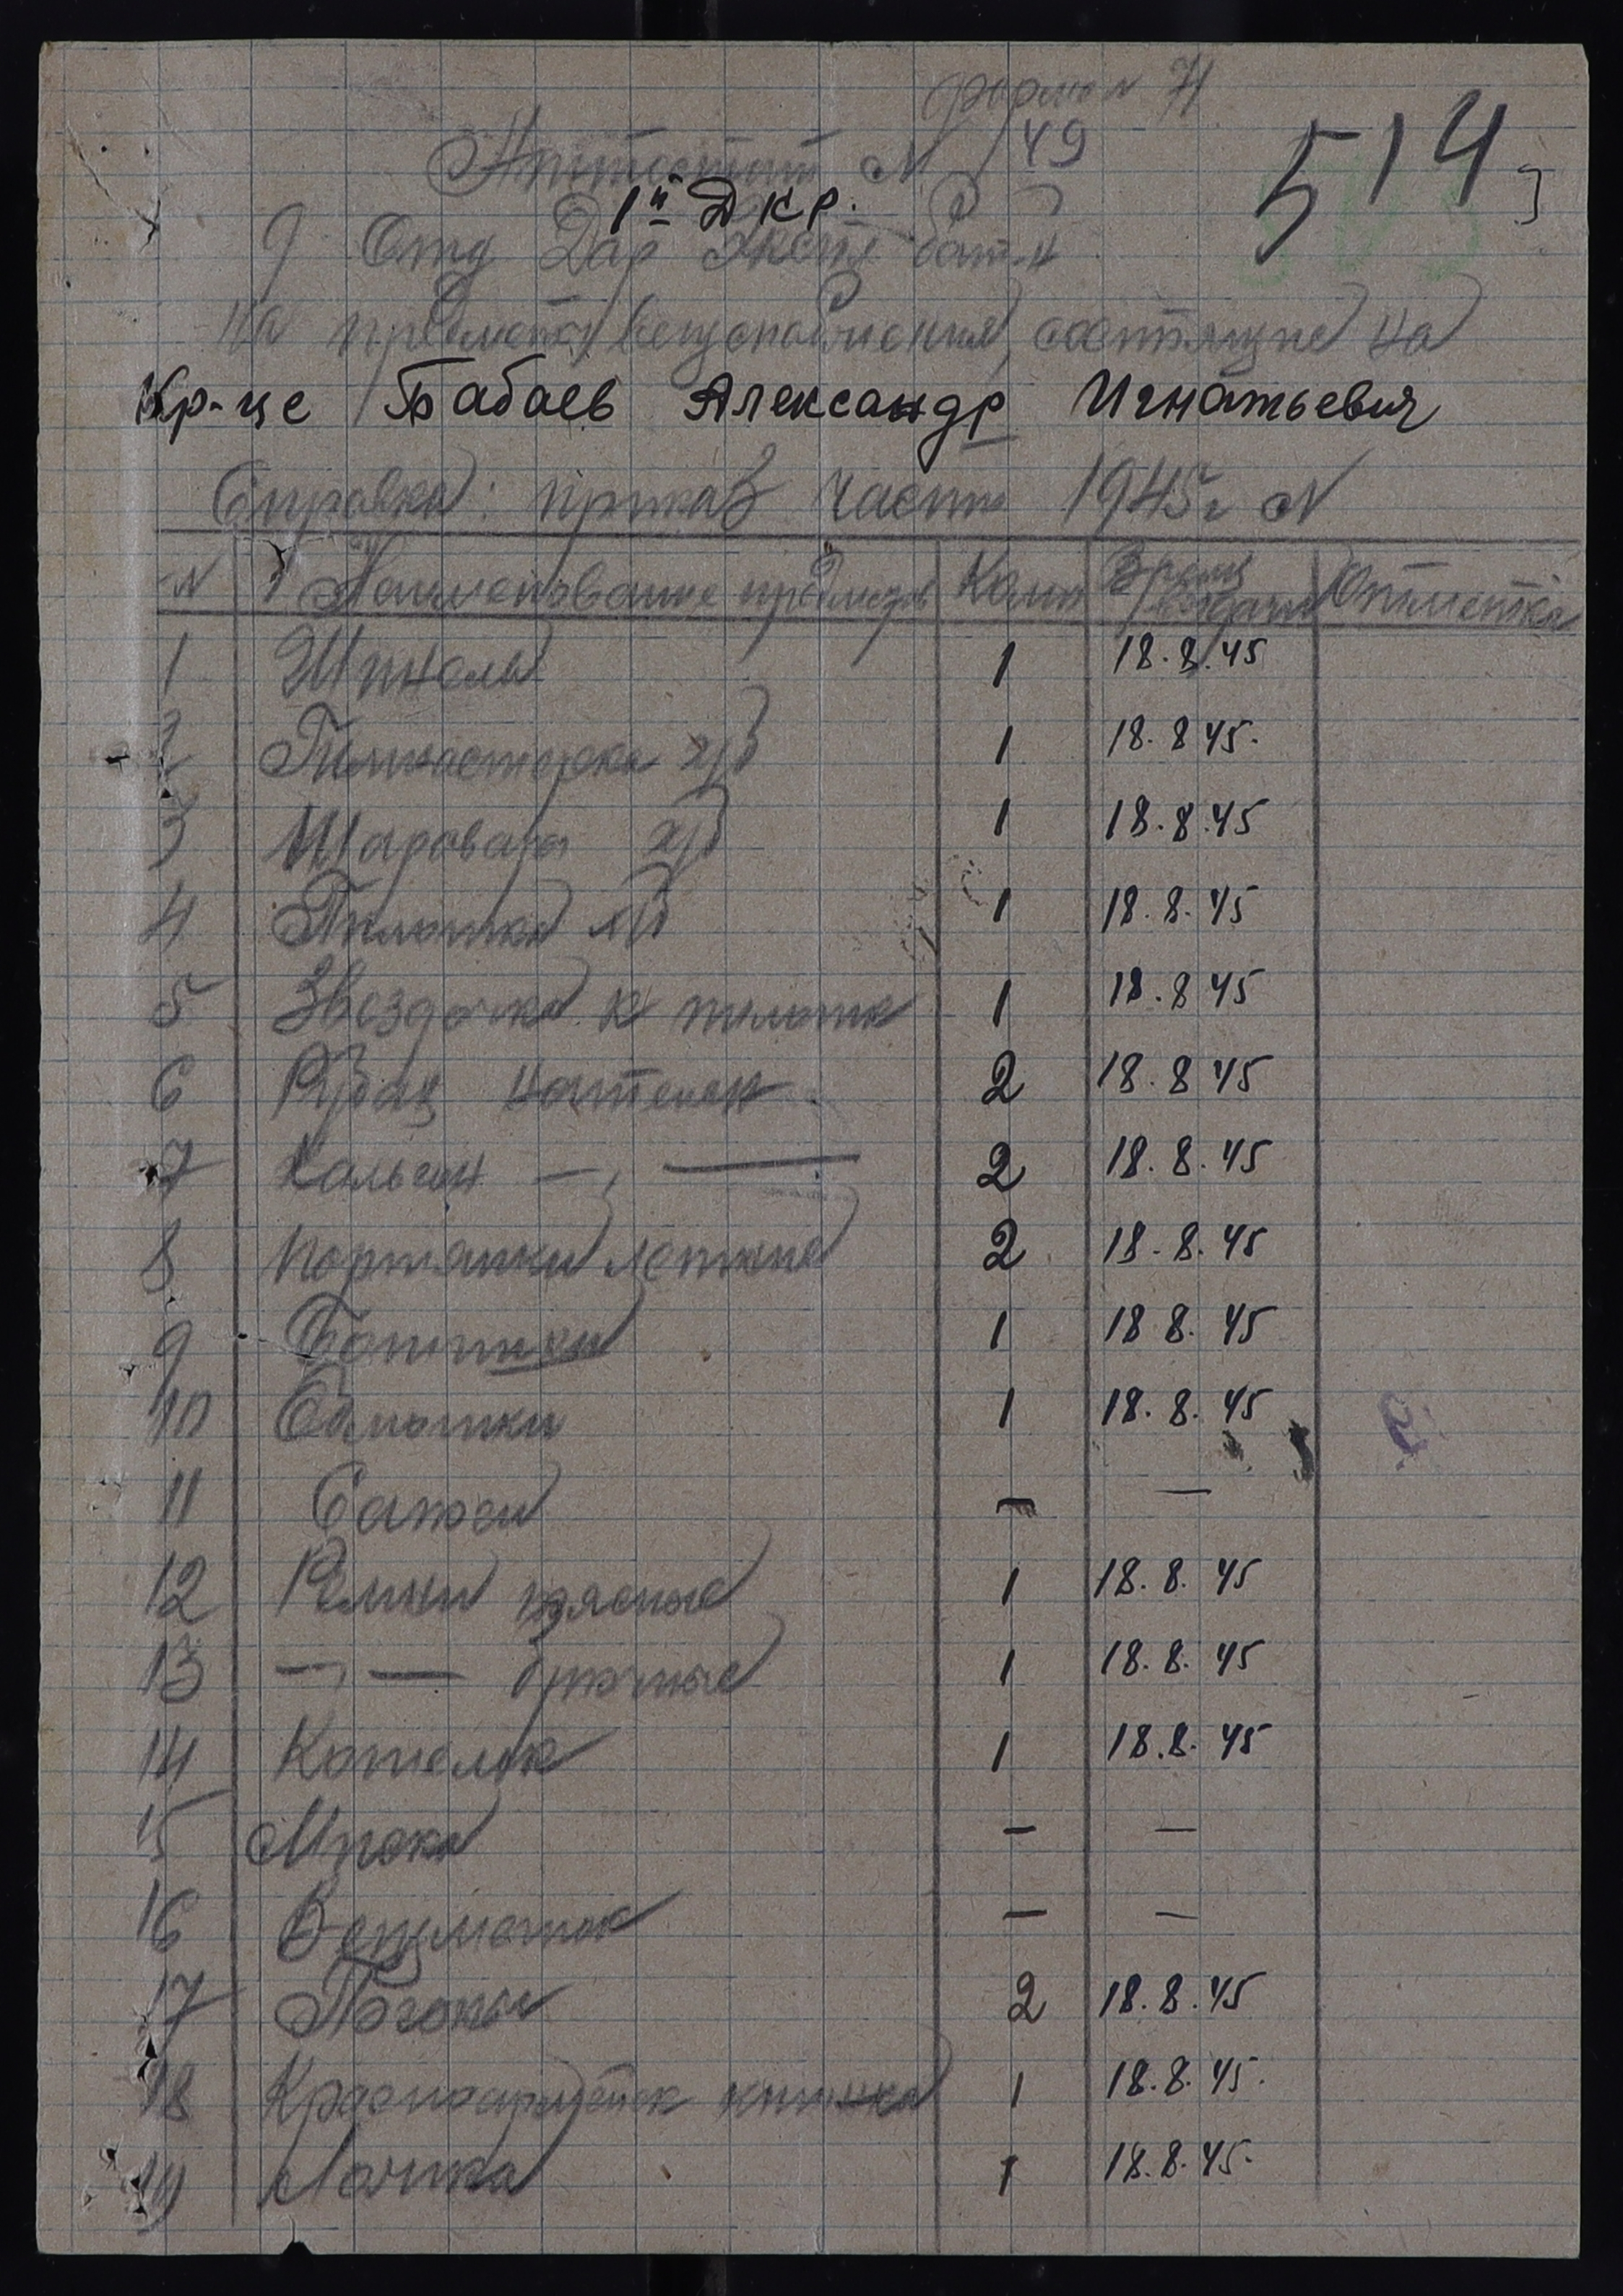 форма N
514
Аттестат N 49
1й ДКР.
9 Отд Дор Экспл бат-н
на предметы вещснабжения состоящие на
Кр-це Бабаев Александр Игнатьевич
Справка: приказ части 1945г N
N Наименование предметов Колич Время выдачи Отметка
1 Шинель 1 18.8.45
2 Гимнастерка х/б 1 18.8 45.
3 Шаровары х/б 1 18.8.45
4 Пилотка х/б 1 18.8.45
5 Звездочка к пилотке 1 18.8 45
6 Рубах нательн 2 18.8 45
7 Кальсон —,— 2 18.8.45
8 Портянки летние 2 18.8.45
9 Ботинки 1 18 8.45
10 Обмотки 1 18.8.45
11 Сапоги — —
12 Ремни поясные 1 18.8.45
13 —,— брючные 1 18.8.45
14 Котелок 1 18.8.45
15 — —
16 Вещмешок — —
17 Погоны 2 18.8.45
18 Красноармейск книжка 1 18.8.45.
19 Ложка 1 18.8.45.